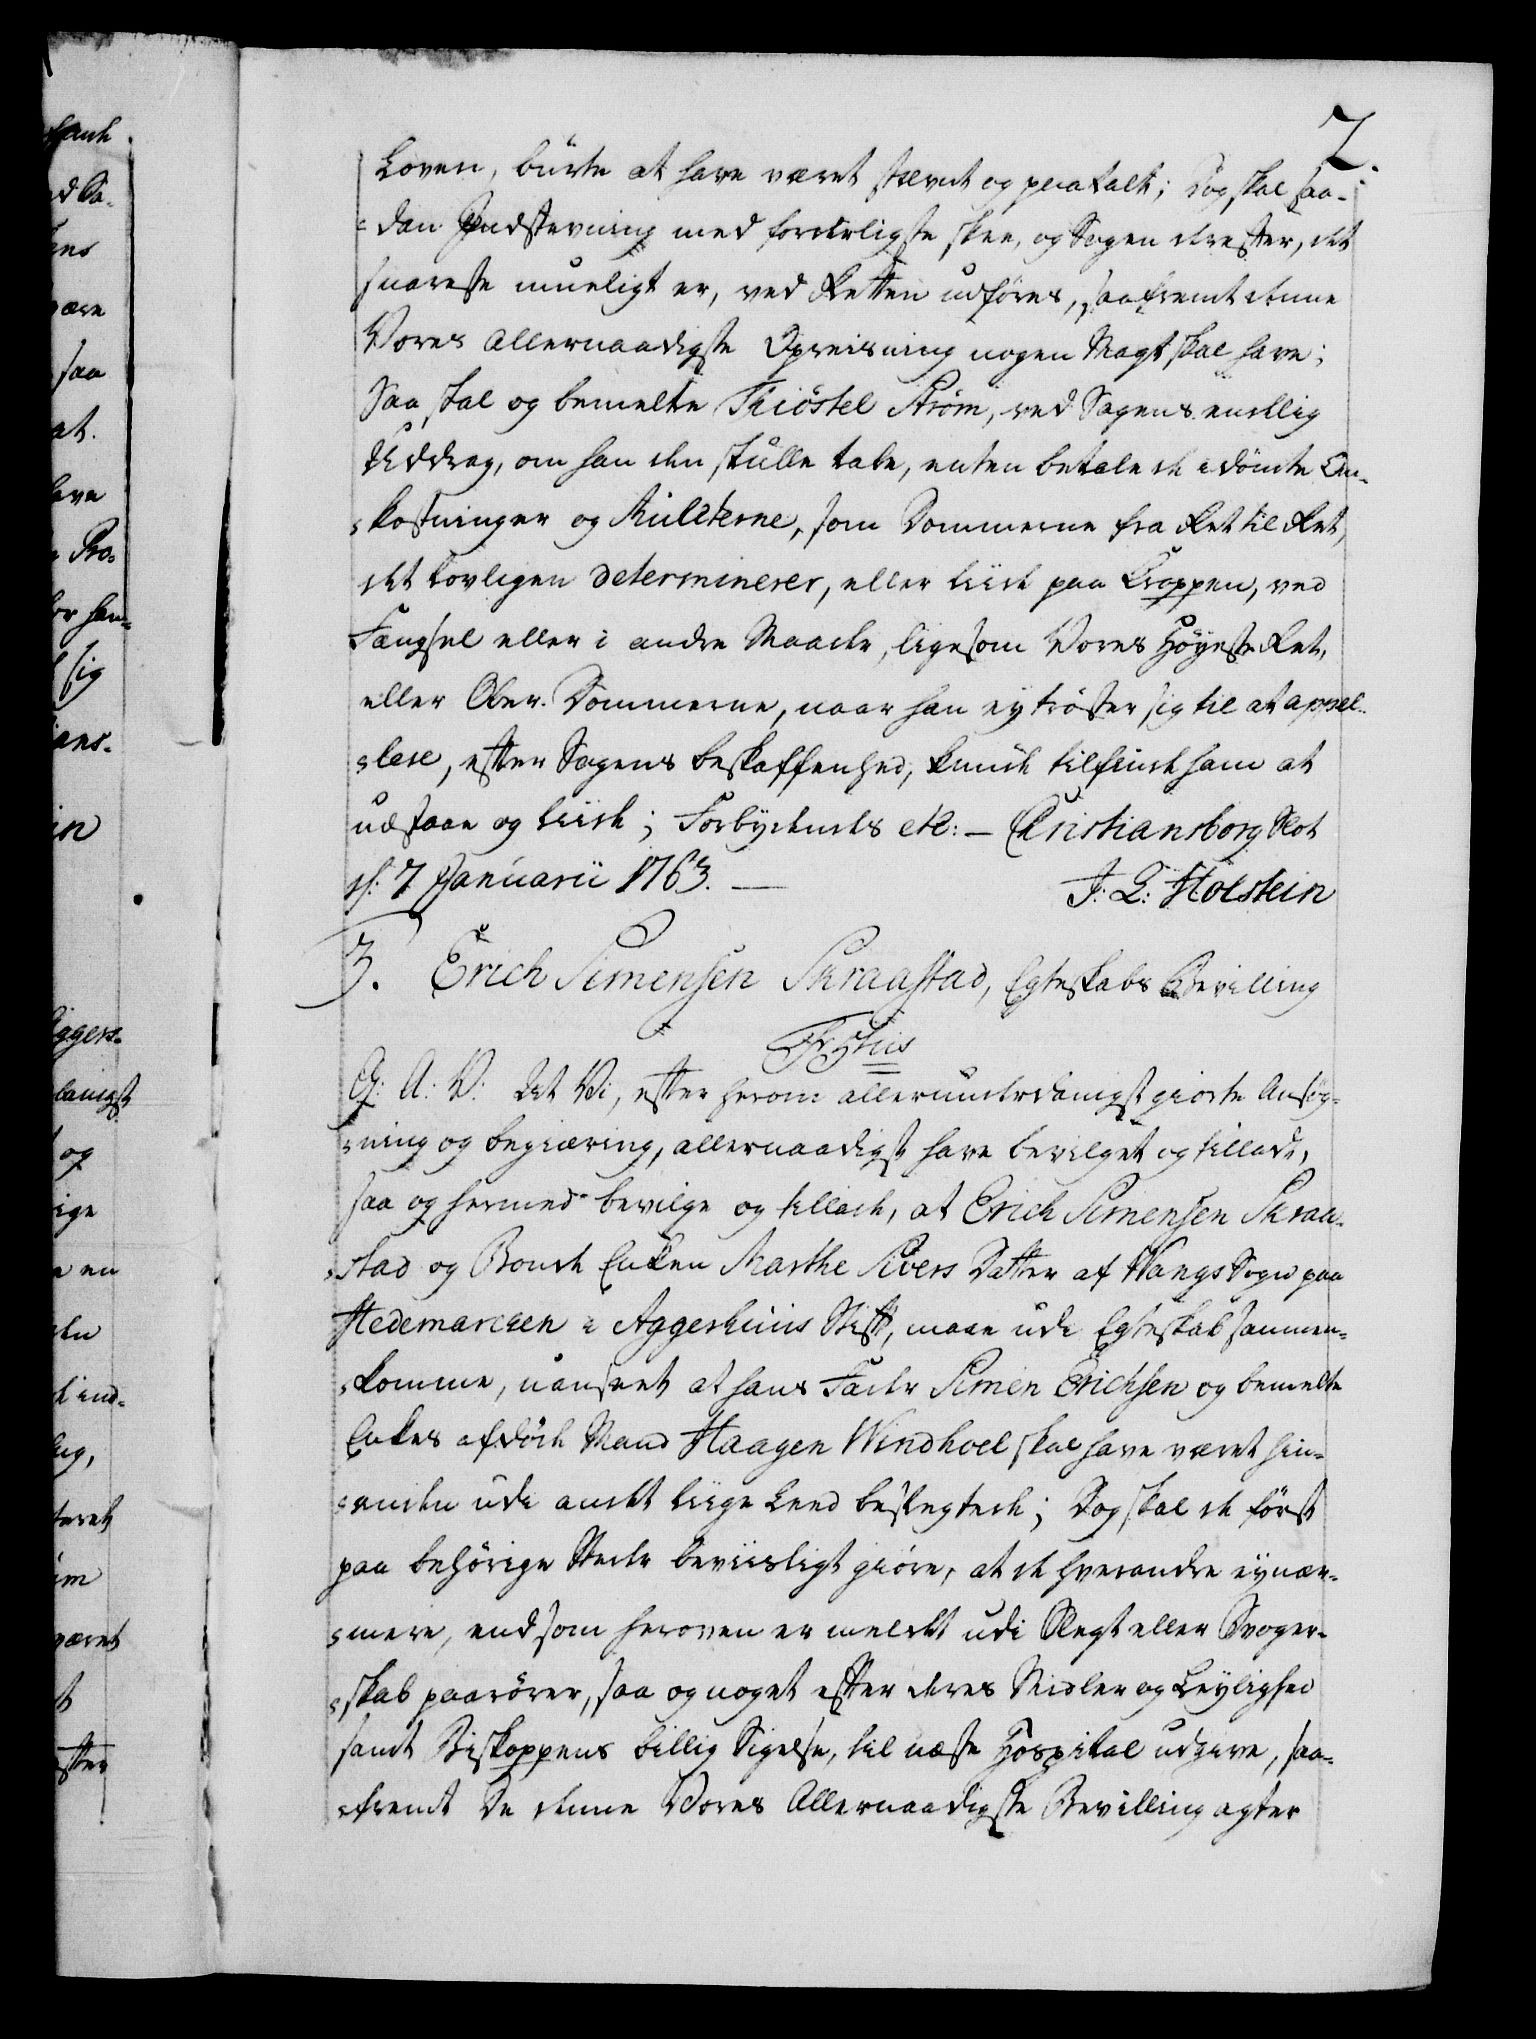 2.
Loven, burte at have været stævnt og paatalt; Dog skal saa-
=dan Indstevning med forderligste skee, og Sagen derefter, det
snareste mueligt er, ved Retten udføres, saafremt denne
Vores Allernaadigste Opreisning nogen Magt skal have;
Saa skal og bemelte Thiöstel Ström, ved Sagens endelig
Uddrag, om han den skulle tabe, enten betale de idömte Om-
=kostninger og Mulcterne, som Dommerne fra Ret til Ret,
det lovligen determinerer, eller liide paa Kroppen, ved
Fængsel eller i andre Maader, ligesom Vores Höyeste Ret,
eller Ober-Dommerne, naar han ey tröster sig til at appel-
=lere, efter Sagens beskaffenhed, kunde tilfinde ham at
udstaae og liide; Forbydendes etc: — Christiansborg Slot
d: 7 Januarii 1763. —
J: L: Holstein
3. Erich Simensen Skraastad, Egteskabs Bevilling
Gratis
G: A: V: At Vi, efter herom allerunderdanigst giorte Ansøg-
=ning og begiæring, allernaadigst have bevilget og tilladt,
saa og hermed bevilge og tillade, at Erich Simensen Skraa-
=stad og Bonde Enken Marthe Sivers Datter af Wangs Sogn paa
Hedemarcken i Aggershuus Stift, maae udi Egteskab sammen-
=komme, uanseet at hans Fader Simen Erichsen og bemelte
Enkes afdöde Mand Haagen Windhoel skal have været hin-
=anden udi andet liige Leed beslegtede; Dog skal de först
paa behörige Steder beviisligt giöre, at de hverandre ey nær-
=mere, end som heroven er meldet udi Slegt eller Svoger-
=skab paarörer, saa og noget efter deres Midler og Leylighed
samt Biskoppens billig Sigelse, til næste Hospital udgive, saa-
=fremt De denne Vores Allernaadigste Bevilling agter